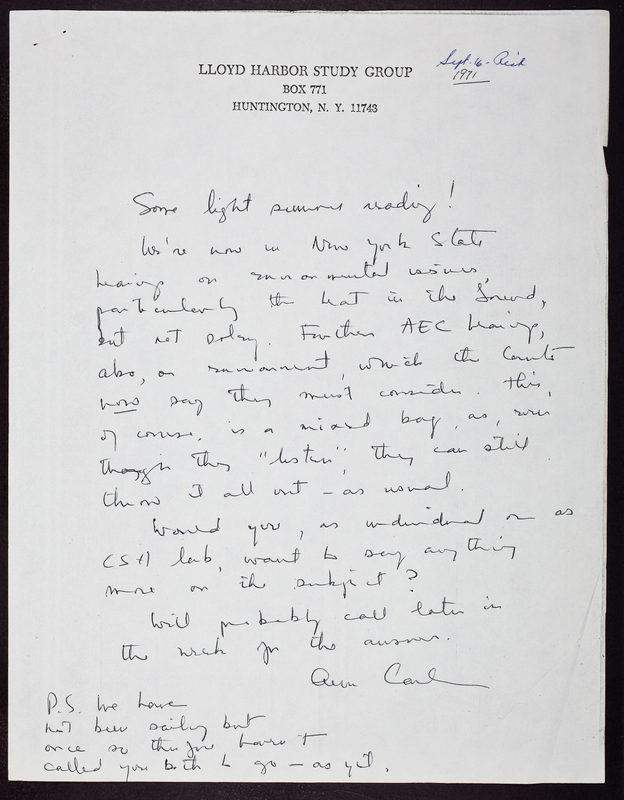 LLOYD HARBOR STUDY GROUP
BOX 771
HUNTINGTON, N. Y. 11743
Sept. 16 -
1971
Some light summer reading!
We're now in New York State
hearings on environmental issues,
particularly the heat in the Sound,
but not solely. Further AEC hearings,
also, on environment, which the Courts
now say they must consider. This,
of course, is a mixed bag, as, even
though they "listen", they can still
throw it all out - as usual.
Would you, as individual or as
CSH lab, want to say anything
more on the subject?
Will probably call later in
the week for the answer.
Ann
P.S. We have
not been sailing but
once so therefore haven't
called you both to go - as yet.